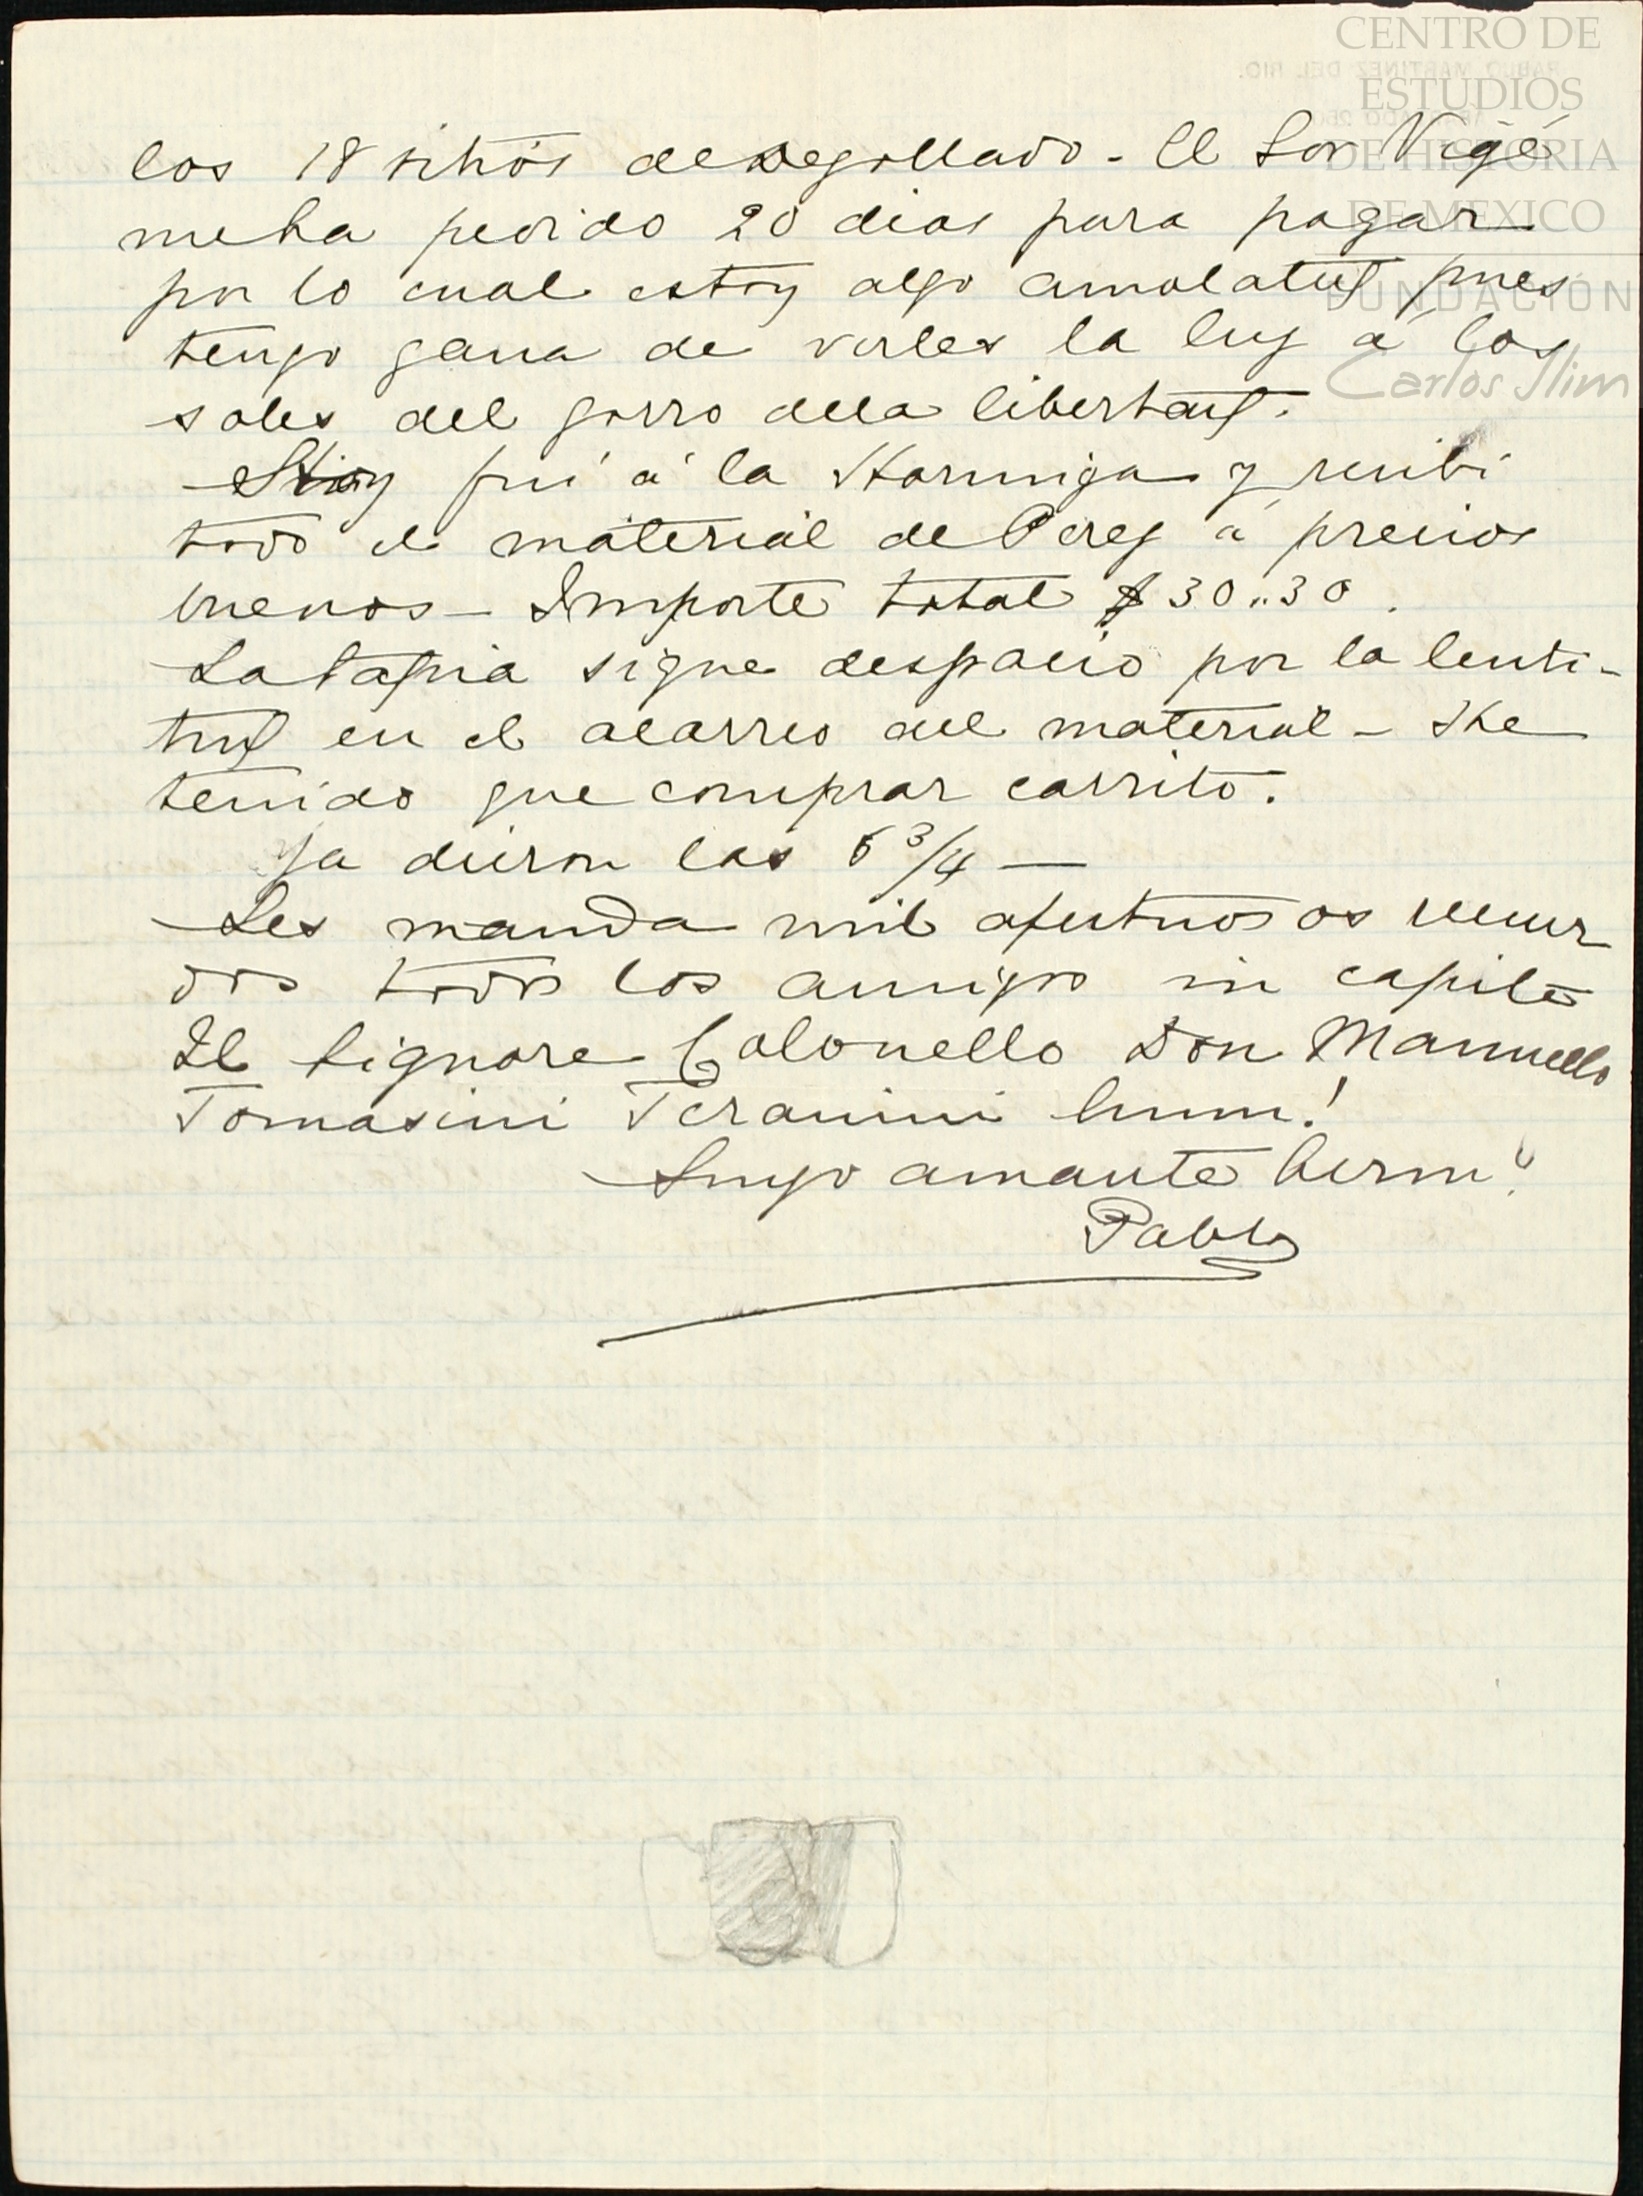 CENTRO DE
ESTUDIOS
DE HISTORIA
DE MEXICO
FUNDACIÓN
Carlos Slim
PABLO MARTINEZ DEL RIO.
los 18 sitios de Degollado - El Sor Vigé
me ha pedido 20 dias para pagar
por lo cual estoy algo amolatus pues
tengo gana de verles la luz á los
soles del gorro de la libertauz.
Hoy fuí á la Hormiga y recibi
todo el material de Perez á precios
buenos - Importe total $30.,30.
La tapia sigue despacio por la lenti-
tuz en el acarreo del material - He
tenido que comprar carrito.
Ya dieron las 6 3/4 —
Les manda mil afectuosos recuer
dos todos los amigos in capite
Il Signore Colonello Don Manuello
Tomasini Teranini hum!
Suyo amante hermo
Pablo